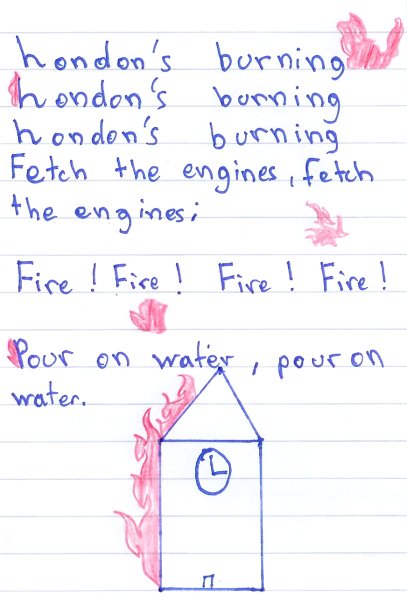 London's burning
London's burning
London's burning
Fetch the engines, fetch
the engines;
Fire! Fire! Fire! Fire!
Pour on water, pour on
water.